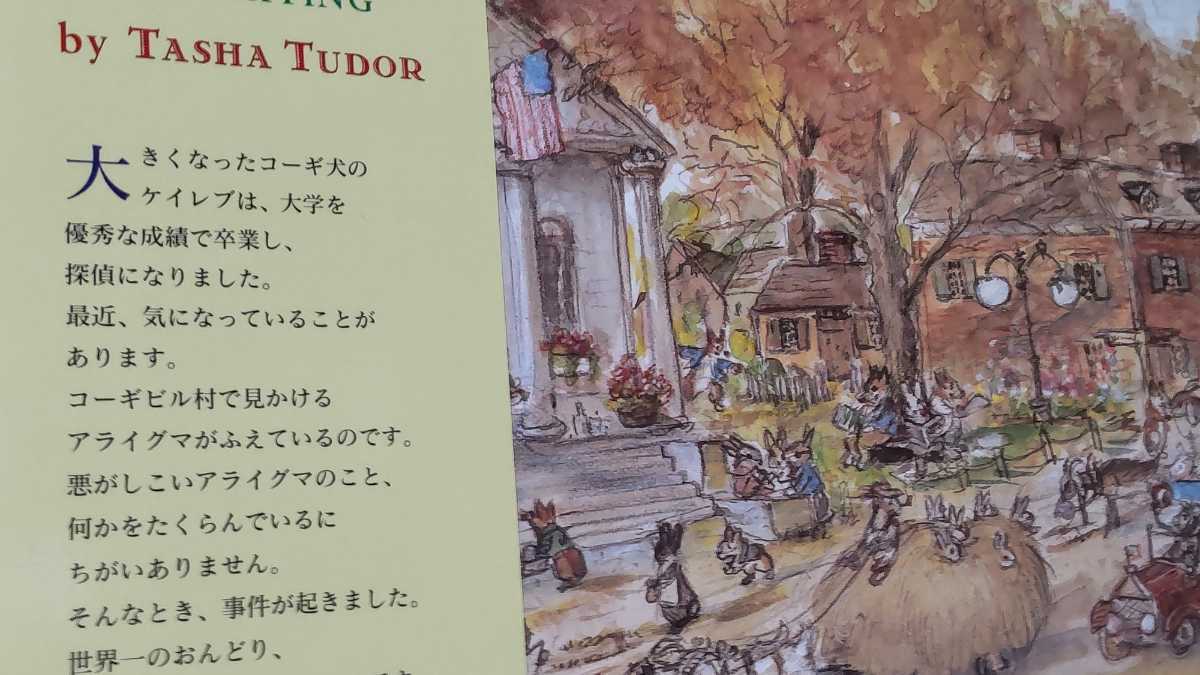 by TASHA TUDOR
大きくなったコーギ犬の
ケイレブは、大学を
優秀な成績で卒業し、
探偵になりました。
最近、気になっていることが
あります。
コーギビル村で見かける
アライグマがふえているのです。
悪がしこいアライグマのこと、
何かをたくらんでいるに
ちがいありません。
そんなとき、事件が起きました。
世界一のおんどり、